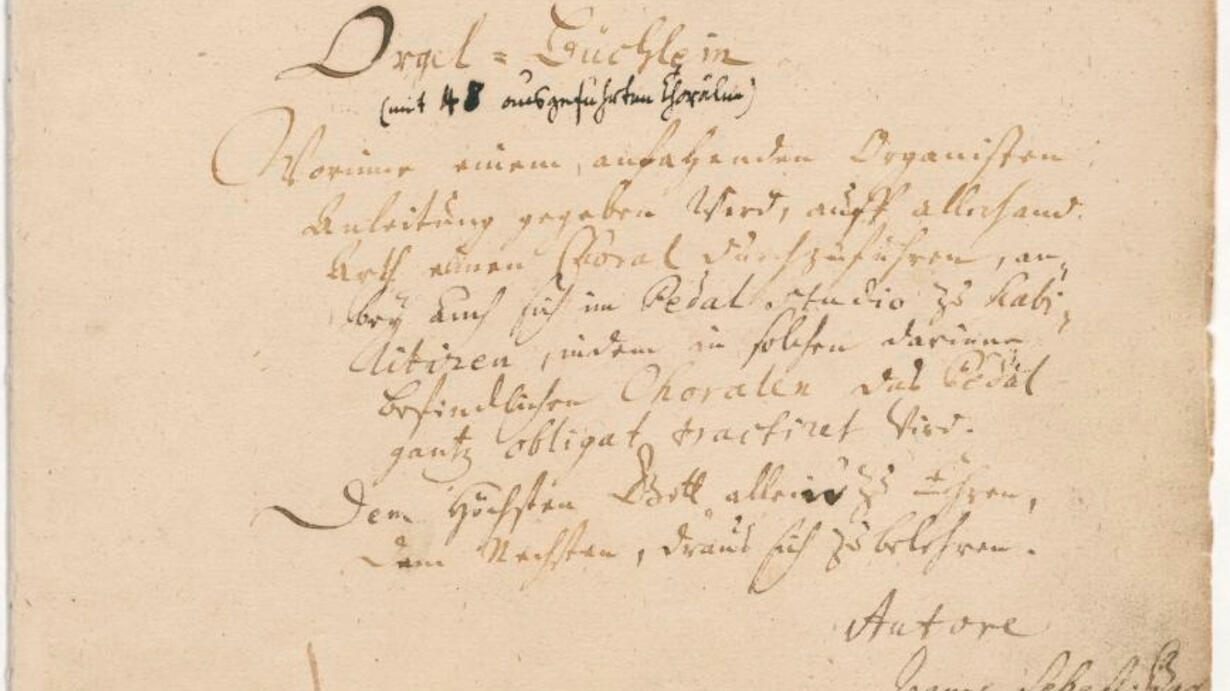 Orgel=Büchlein
(mit 48 ausgeführten Chorälen)
Worinne einem anfahenden Organisten
Anleitung gegeben wird, auff allerhand
Arth einen Choral durchzuführen, an-
bey auch sich im Pedal studio zu habi-
litiren, indem in solchen darinne
befindlichen Choralen das Pedal
gantz obligat tractiret wird.
Dem Höchsten Gott allein zu Ehren,
Dem Nechsten, draus sich zu belehren.
Autore